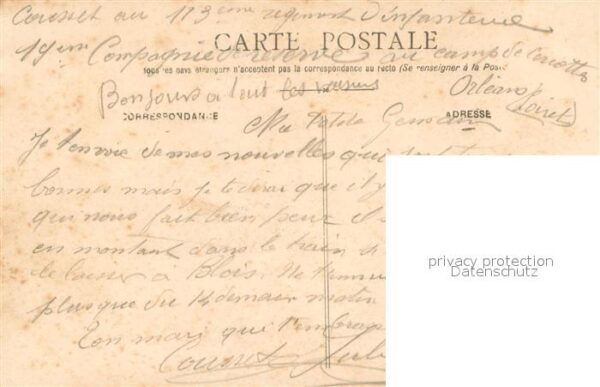 Cousset au 113ème régiment d'infanterie
19ème Compagnie de réserve au camp de Cercottes
CARTE POSTALE
Tous les pays étrangers n'acceptent pas la correspondance au recto (Se renseigner à la Poste
Orléans
Loiret
Bonjours a tout les voisins
CORRESPONDANCE
ADRESSE
Ma
Je t'envoie de mes nouvelles qui sont
bonnes mais je te dirai que il y
qui nous fait bien peur il
en montant dans le train
de laisser à Blois. Ne
plus que du 14 demain matin
Ton mari qui t'embrasse
privacy protection
Datenschutz